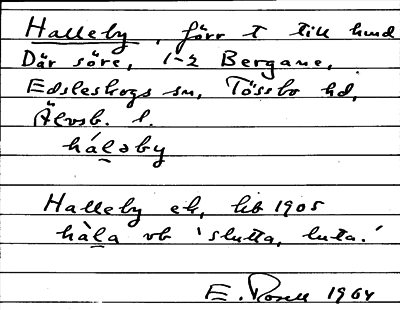 Halleby, förr t till hmd
Där söre, 1-2 Bergane,
Edsleskogs sn, Tössbo hd,
Älvsb. l.
háləby
Halleby ek, hb 1905
hàla vb 'slutta, luta.'
E. Rosell 1964